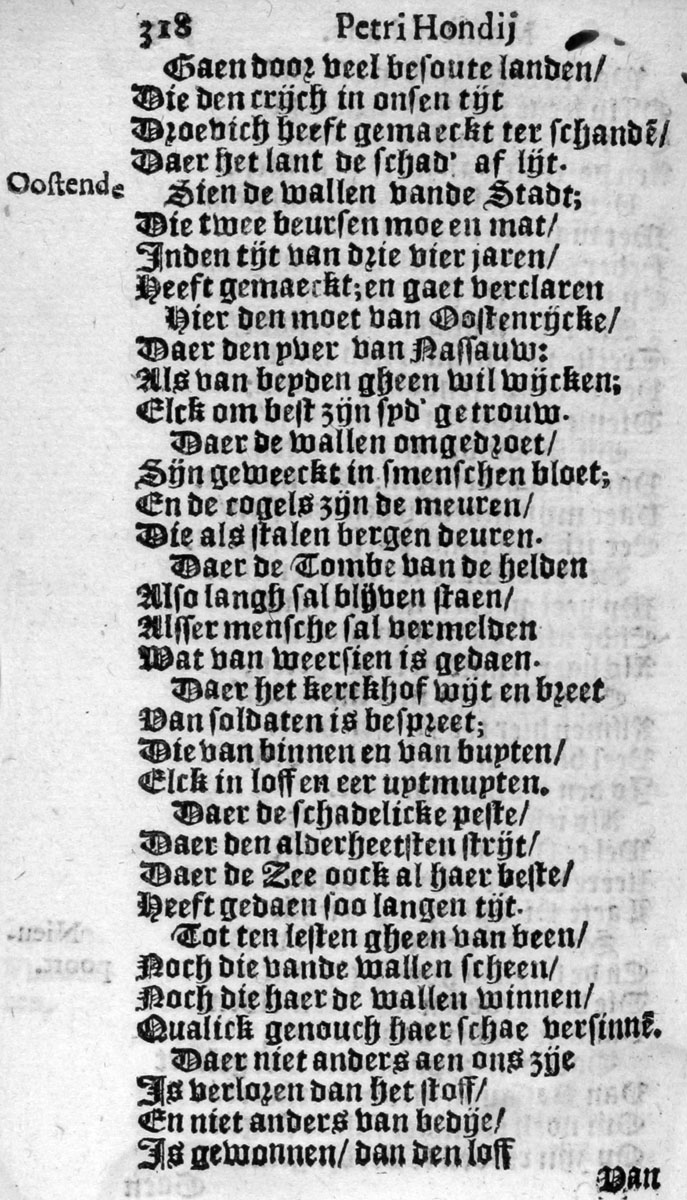 318 Petri Hondij
Gaen door veel besoute landen/
Die den crijch in onsen tijt
Droevich heeft gemaeckt ter schandẽ/
Daer het lant de schad' af lijt.
Oostende
Sien de wallen vande Stadt;
Die twee beursen moe en mat/
Inden tijt van drie vier jaren/
Heeft gemaeckt; en gaet verclaren
Hier den moet van Oostenrijcke/
Daer den yver van Nassauw:
Als van beyden gheen wil wijcken;
Elck om best zijn syd' getrouw.
Daer de wallen omgedroet/
Sijn geweeckt in smenschen bloet;
En de cogels zijn de meuren/
Die als stalen bergen deuren.
Daer de Tombe van de helden
Also langh sal blijven staen/
Alsser mensche sal vermelden
Wat van weersien is gedaen.
Daer het kerckhof wijt en breet
Van soldaten is bespreet;
Die van binnen en van buyten/
Elck in loff en eer uytmuyten.
Daer de schadelicke peste/
Daer den alderheetsten strijt/
Daer de Zee oock al haer beste/
Heeft gedaen soo langen tijt.
Tot ten lesten gheen van been/
Noch die vande wallen scheen/
Noch die haer de wallen winnen/
Qualick genouch haer schae versinnẽ.
Daer niet anders aen ons zije
Is verloren dan het stoff/
En niet anders van bedije/
Is gewonnen/ dan den loff
Van